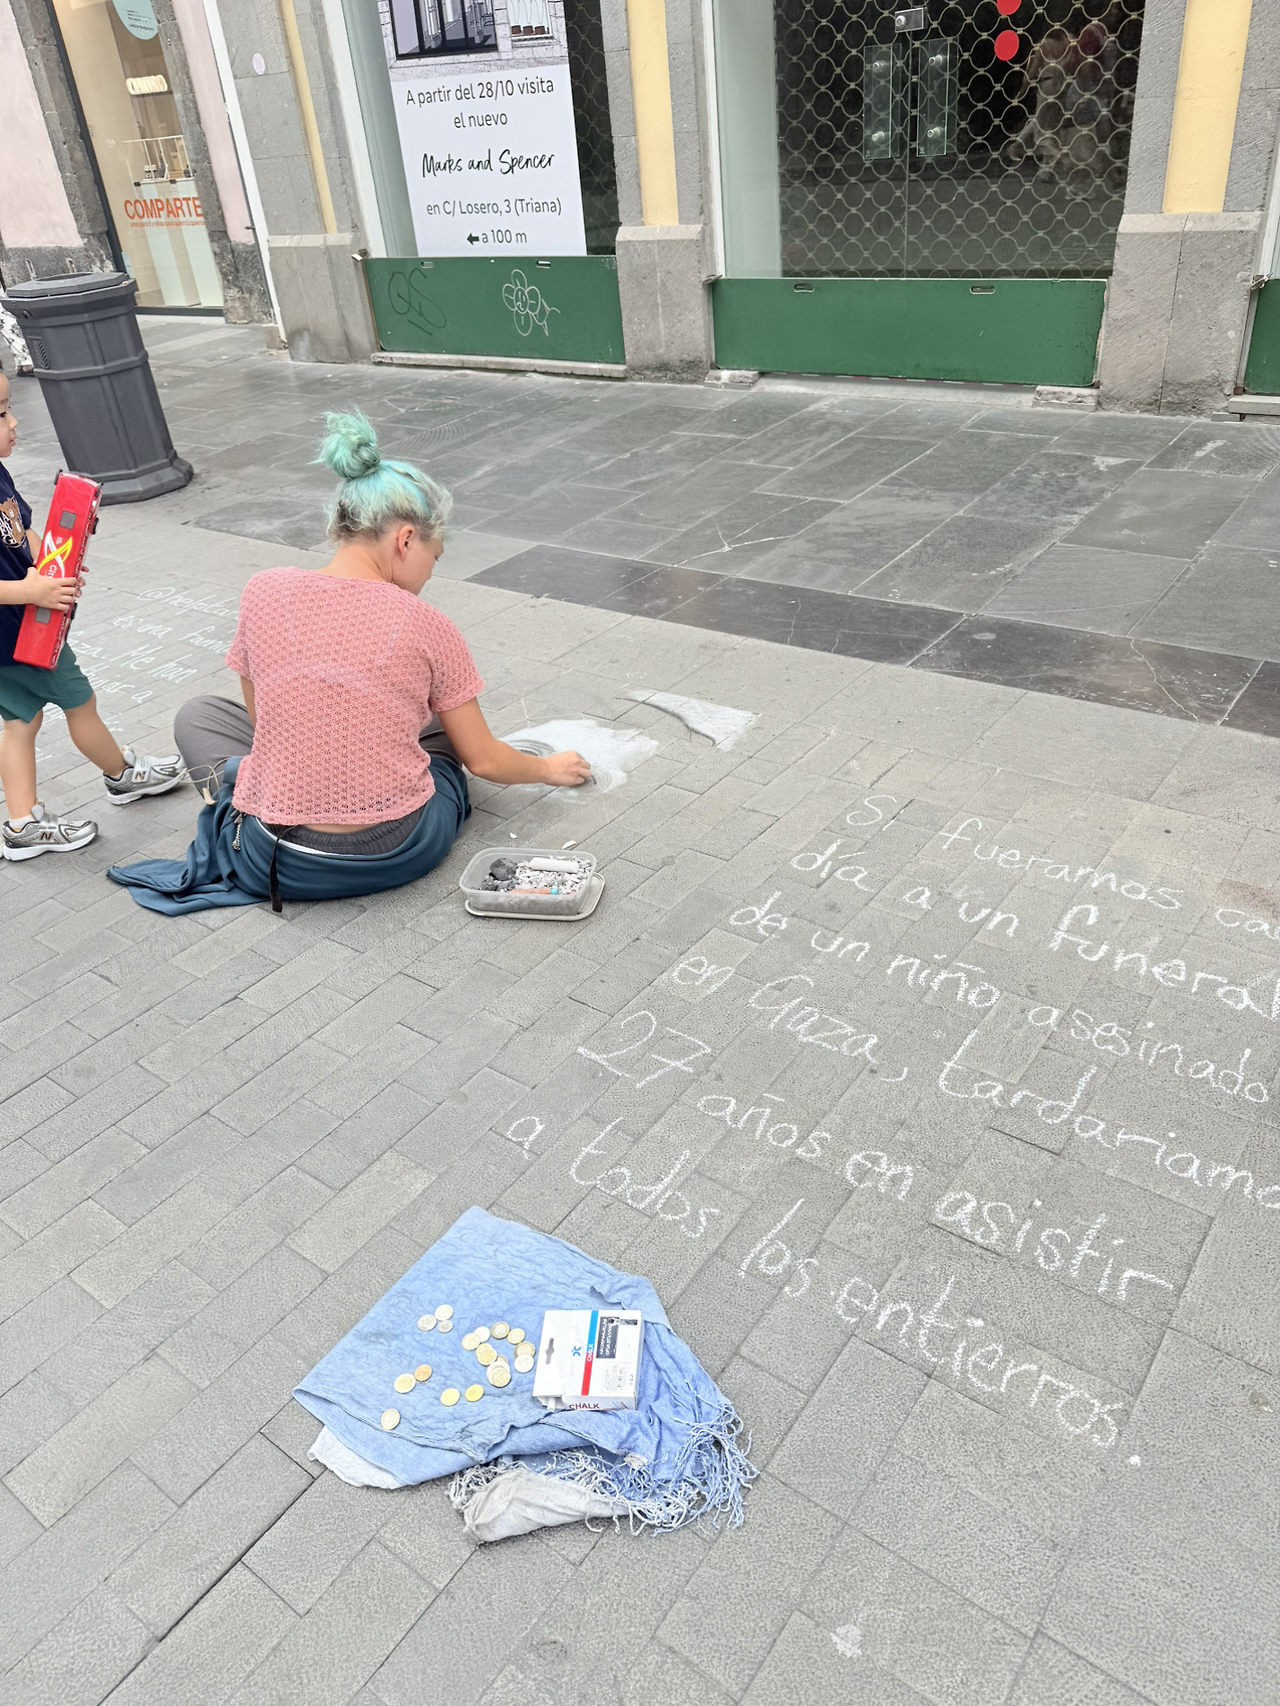 A partir del 28/10 visita
el nuevo
Marks and Spencer
en C/ Losero, 3 (Triana)
a 100 m
COMPARTE
es una
Me han
a
Si fueramos
día a un funeral
de un niño asesinado
en Gaza, tardariamo
27 años en asistir
a todos los entierros
CHALK